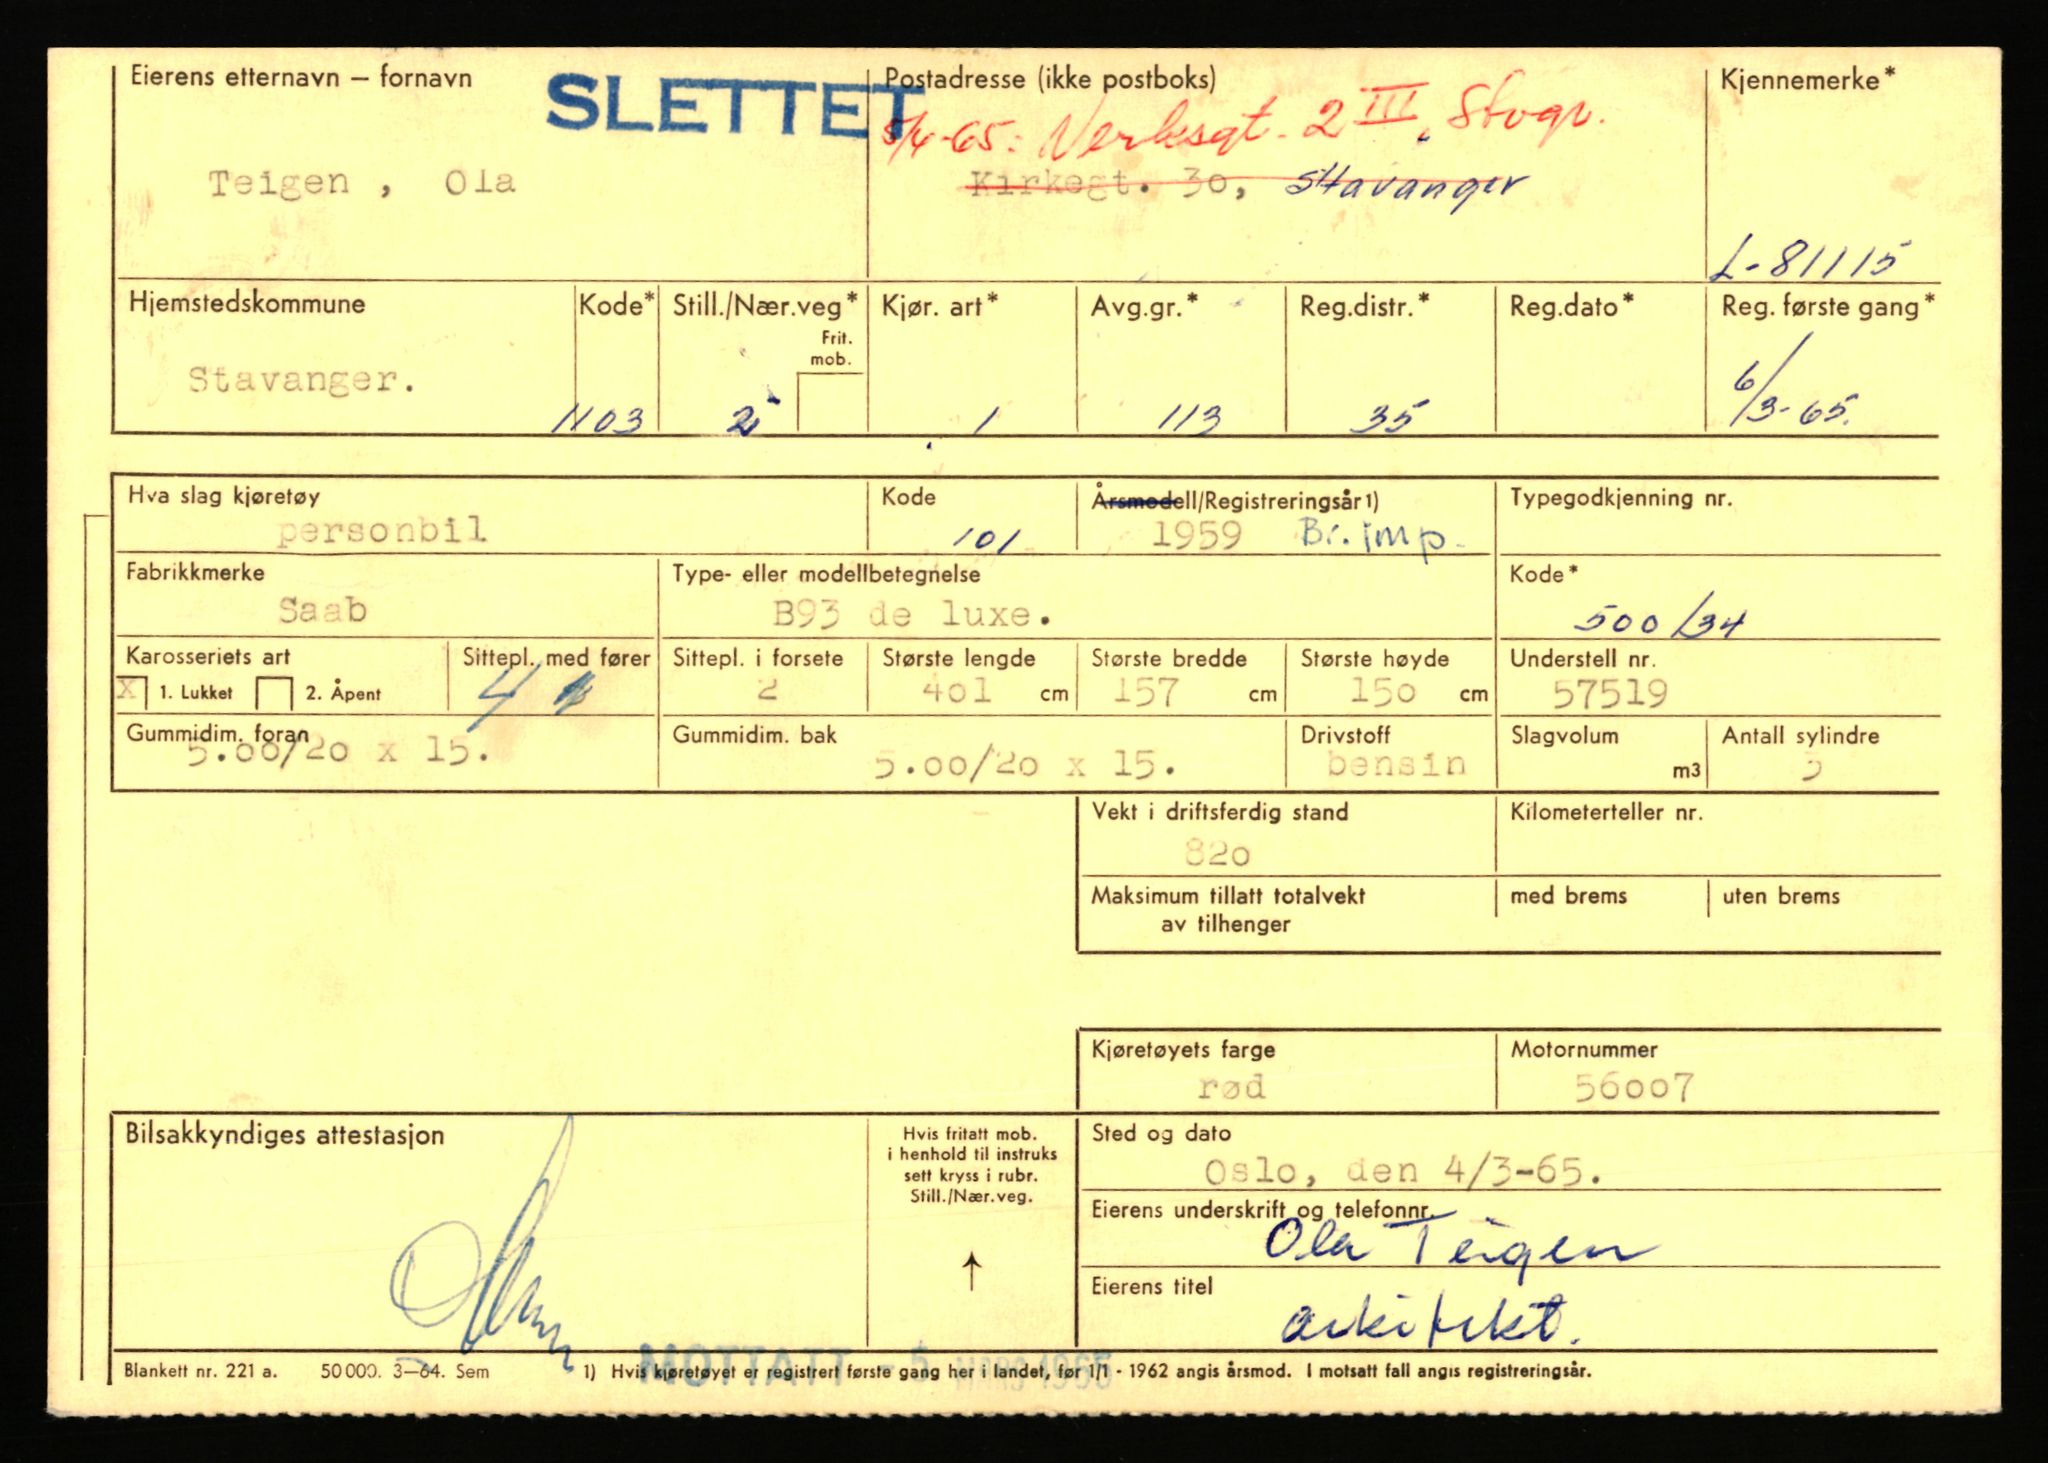 Eierens etternavn – fornavn
SLETTET
Postadresse (ikke postboks)
Kjennemerke*
5/4-65: Verksgt. 2 III, Stvgr.
Teigen , Ola
Kirkegt. 3o, Stavanger
L-81115
Hjemstedskommune Kode* Still./Nær.veg* Kjør. art* Avg.gr.* Reg.distr.* Reg.dato* Reg. første gang*
Frit. mob.
Stavanger. 1103 2 1 113 35 6/3-65.
Hva slag kjøretøy Kode Årsmodell/Registreringsår 1) Typegodkjenning nr.
personbil 101 1959 Br. imp.
Fabrikkmerke Type- eller modellbetegnelse Kode*
Saab B93 de luxe. 500/34
Karosseriets art Sittepl. med fører Sittepl. i forsete Største lengde Største bredde Største høyde Understell nr.
X 1. Lukket 2. Åpent 4 2 4o1 cm 157 cm 15o cm 57519
Gummidim. foran Gummidim. bak Drivstoff Slagvolum Antall sylindre
5.oo/2o x 15. 5.oo/2o x 15. bensin m3 3
Vekt i driftsferdig stand Kilometerteller nr.
82o
Maksimum tillatt totalvekt av tilhenger med brems uten brems
Kjøretøyets farge Motornummer
rød 56oo7
Bilsakkyndiges attestasjon
Hvis fritatt mob.
i henhold til instruks
sett kryss i rubr.
Still./Nær.veg.
↑
Sted og dato
Oslo, den 4/3-65.
Eierens underskrift og telefonnr.
Ola Teigen
Eierens titel
arkitekt.
MOTTATT - 5 MARS 1965
Blankett nr. 221 a. 50 000. 3–64. Sem 1) Hvis kjøretøyet er registrert første gang her i landet, før 1/1 - 1962 angis årsmod. I motsatt fall angis registreringsår.